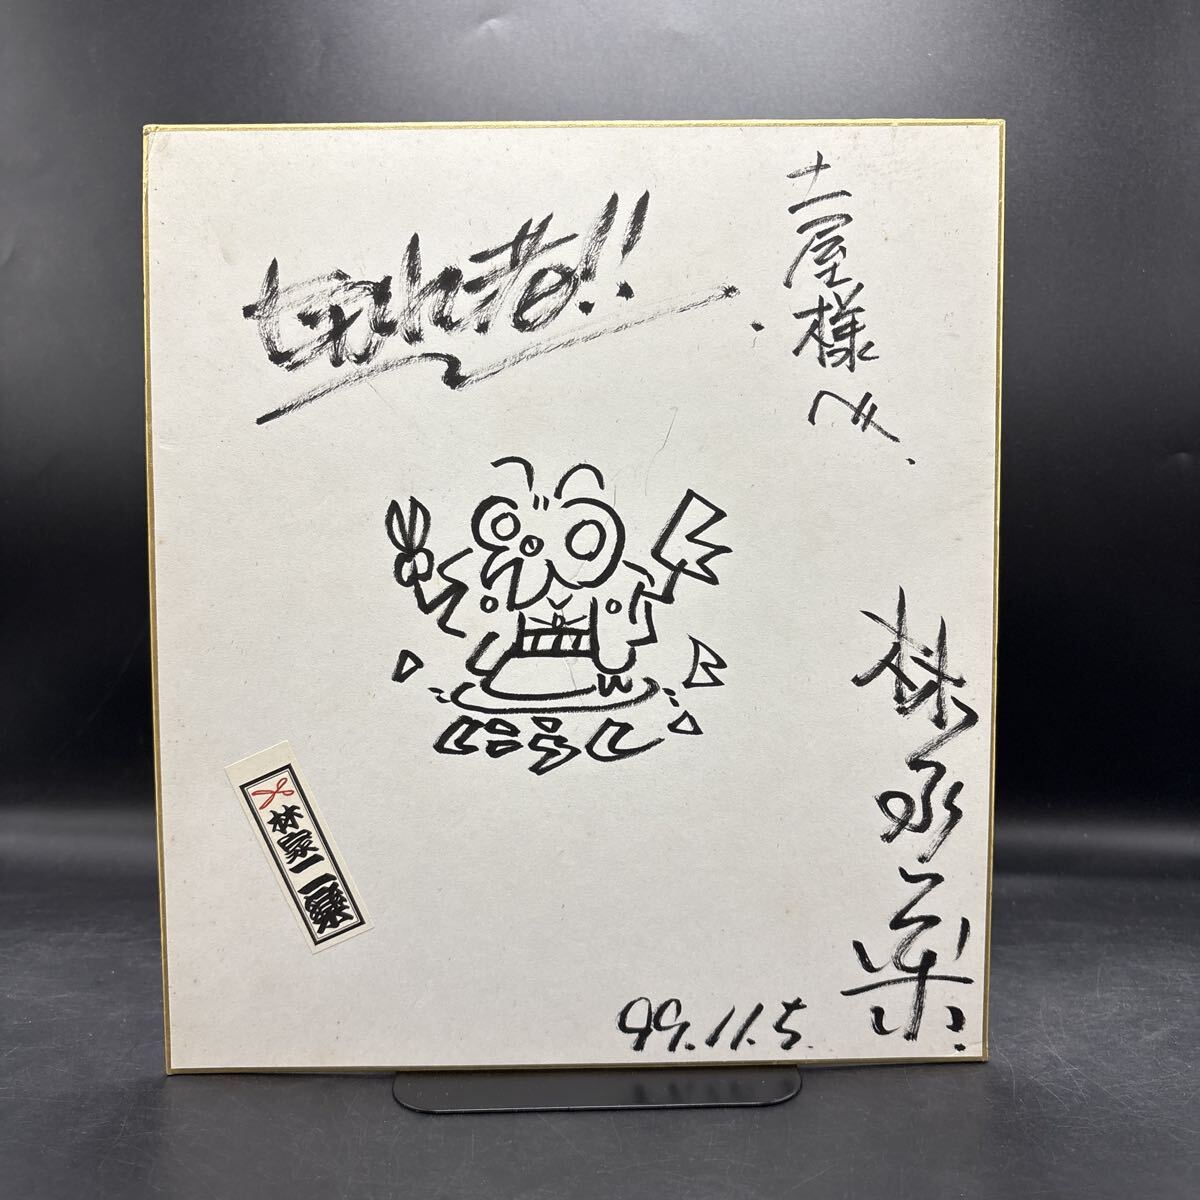 土屋様へ
切れ者!!
林家二楽
林家二楽
99.11.5.